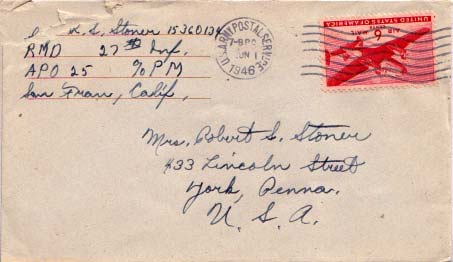 R. S. Stoner 15360134
RMD 27th Inf.
APO 25 % P M
San Fran, Calif,
U.S. ARMY POSTAL SERVICE
JUN 1
1946
UNITED STATES OF AMERICA
AIR MAIL
6 CENTS
Mrs. Robert S. Stoner
433 Lincoln Street
York, Penna.
U. S. A.